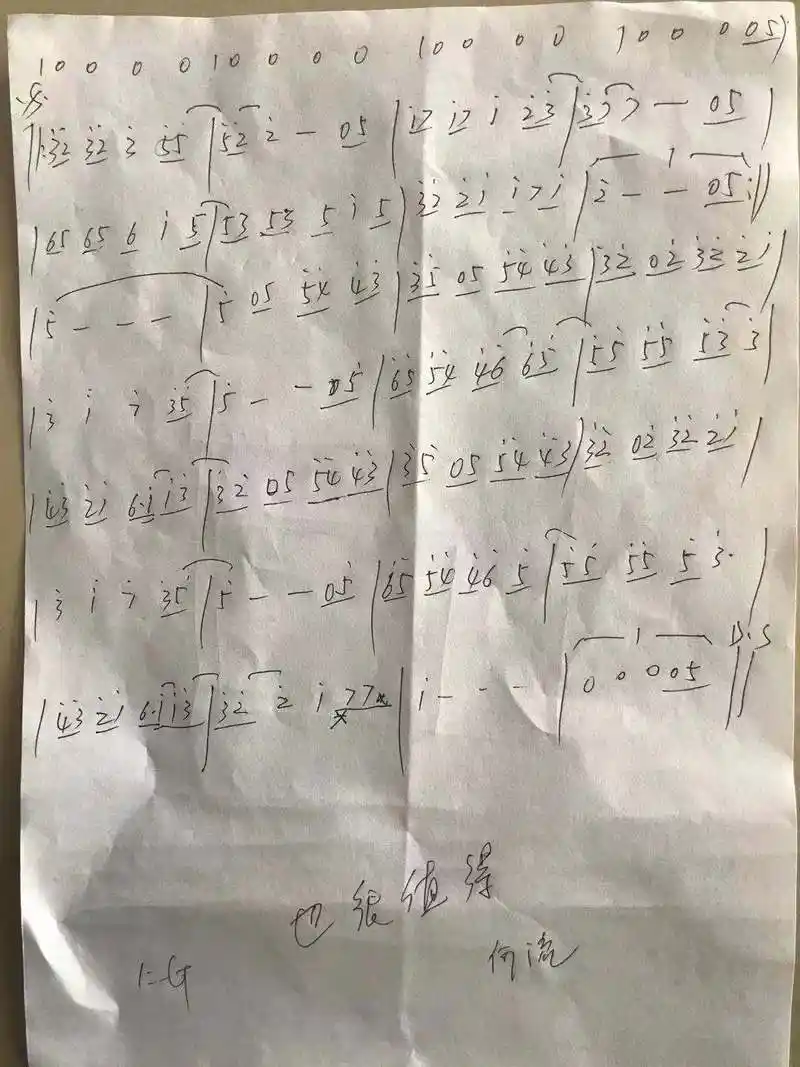 1 0 0 0 0 1 0 0 0 0 1 0 0 0 0 1 0 0 0 05)
𝄋
‖: 3̇2̇ 3̇2̇ 3̇ 5̇5̇ | 5̇2̇ 2̇ — 05 | i7 i7 i 2̇3̇ | 3̇7 7 — 05 |
| 65 65 6 i 5 | 53 53 5 i 5 | 3̇2̇ 2̇i i 7 i | 2̇ — — 05 :‖ 1
| 5̇ — — — | 5̇ 05 5̇4̇ 4̇3̇ | 3̇5̇ 05 5̇4̇ 4̇3̇ | 3̇2̇ 02̇ 3̇2̇ 2̇i |
| 3̇ i 7 3̇5̇ | 5̇ — — 05̇ | 6̇5̇ 5̇4̇ 4̇6̇ 6̇5̇ | 5̇5̇ 5̇5̇ 5̇3̇ 3̇ |
| 4̇3̇ 2̇i 6·i i3̇ | 3̇2̇ 05 5̇4̇ 4̇3̇ | 3̇5̇ 05 5̇4̇ 4̇3̇ | 3̇2̇ 02̇ 3̇2̇ 2̇i |
| 3̇ i 7 3̇5̇ | 5̇ — — 05̇ | 6̇5̇ 5̇4̇ 4̇6̇ 5̇ | 5̇5̇ 5̇5̇ 5̇ 3̇· |
| 4̇3̇ 2̇i 6·i i3̇ | 3̇2̇ 2̇ i 77 | i — — — | 0 0 0 05 ‖ 1 D.S
也很值得
1=G 何流